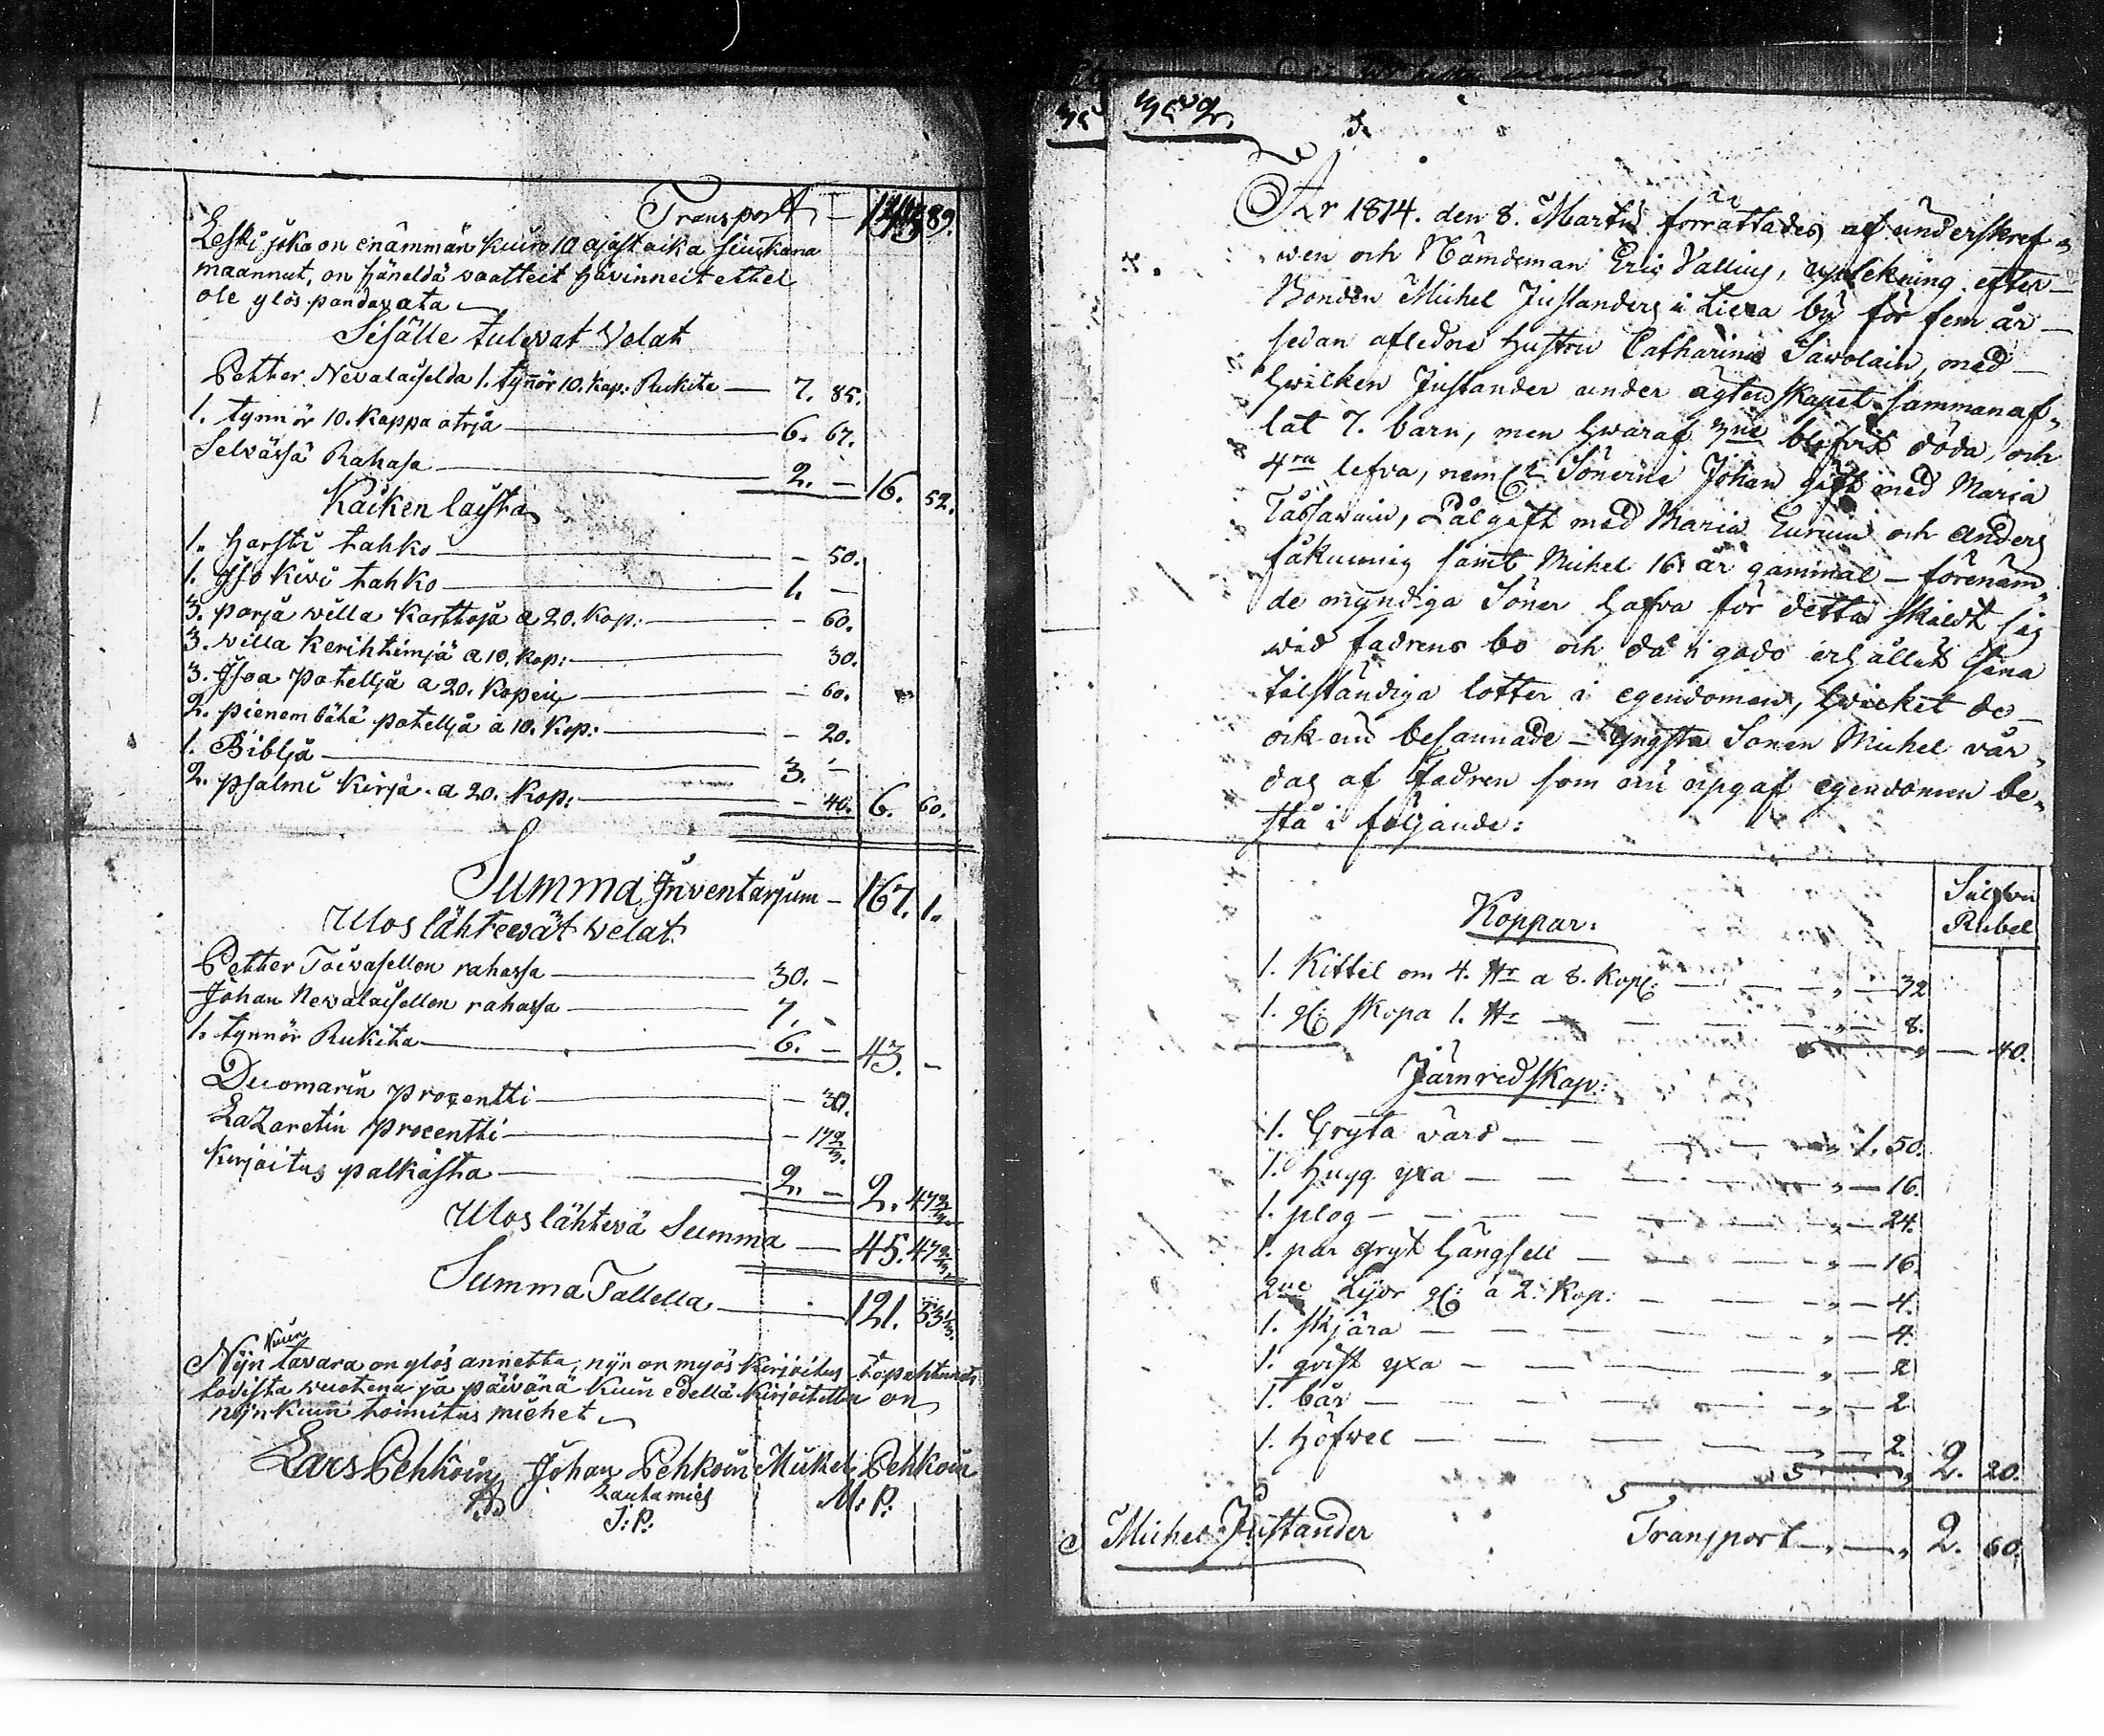 Transport — 143. 89.
Leski joka on enämmän kuin 10 ajast aika siuskana
maannut, on häneldä vaatteit hävinneit ettei
ole ylös pandavata
Sisälle tulevat Velat
Petter Nevalaiselda 1. tynnör 10. kap: Rukita — 7. 85.
1. tynnör 10. Kappa otrja — 6. 67.
Selvässä Rahasa — 2. — 16. 52.
Kaiken laista
1. Harsti tahko — 50.
1. Iso Kivi tahko — 1. —
3. parja villa Karttoja a 20. Kop: — 60.
3. villa Kerihtimjä a 10. Kop: — 30.
3. Isoa potelljä a 20. Kopeik — 60.
2. pienembätä potelljä a 10. Kop: — 20.
1. Biblja — 3. —
2. psalmi Kirja a 20. Kop: — 40. 6. 60.
Summa Inventarjum — 167. 1.
Ulos lähteevät velat
Petter Toivasellen rahassa — 30. —
Johan Nevalaisellen rahassa — 7. —
1. tynnör Rukita — 6. — 43. —
Duomarin procentti — 30.
Lazaretin Procentti — 17 2/3.
Kirjoitus palkasta — 2. — 2. 47 2/3.
Ulos lähtevä Summa — 45. 47 2/3.
Summa Tallella — 121. 53 1/3.
Kuin
Nijn tavara on ylös annettu, nijn on myös Kirjoitus tapahtunut
todista vuotena ja päivänä Kuin edellä Kirjoitettu on
nijnkuin toimitus miehet
Lars Pehkoin Johan Pehkoin Mickel Pehkoin
Lautamies M: P:
J: P:
År 1814. den 8. Martii förrättades af underskref-
ven och Nämdeman Eric Vallius, upteckning efter
Bonden Michel Justanders i Liexa by för fem år
sedan aflednа hustru Catharina Savolain, med
hvilken Justander under ägtenskapet sammanaf-
lat 7. barn, men hvaraf 3ne blifvit döda, och
4ra lefva, neml: Sönerne Johan gift med Maria
Tassavain, Pål gift med Maria Turuin och Anders
säkunnig samt Michel 16 år gammal — förenäm-
de myndiga Söner hafva för detta skildt sig
vid fadrens bo och då i godo erhållit sina
tilständiga lotter i egendomen, hvilket de
ock nu besannade — yngsta Sonen Michel vår-
das af fadren som nu upgaf egendomen be-
stå i följande:
Silfver
Koppar: Rubel
1. Kittel om 4. ℔ a 8. Kop: — 32
1. dº skopa 1. ℔ — 8.
— 40.
Järnredskap:
1. Gryta värd — 1. 50.
1. Hugg yxa — 16.
1. plog — 24.
1. par gryt hängsell — 16.
2ne Lijor dº a 2. Kop: — 4.
1. skjära — 4.
1. qvist yxa — 2
1. bår — 2
1. Höfvel — 2 2. 20.
Michel Justander Transport — 2. 60.